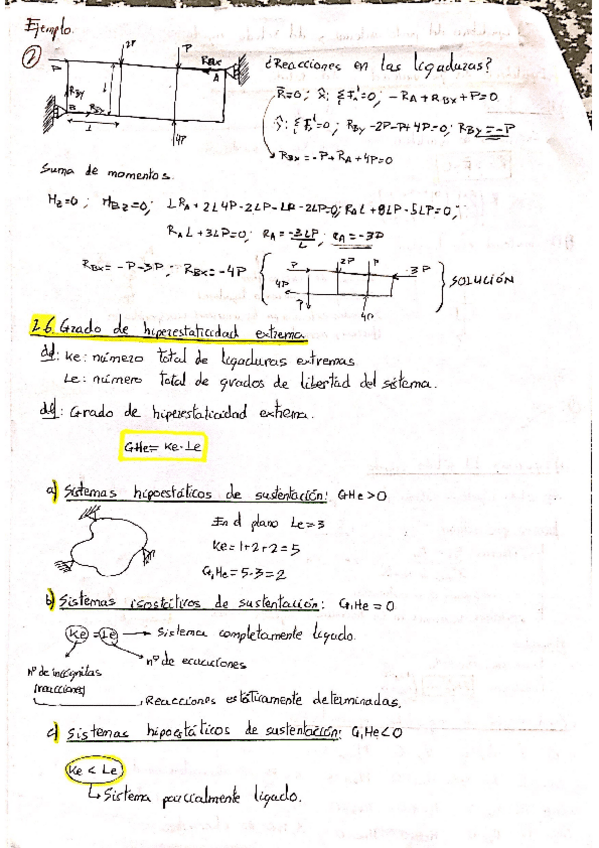 Ejemplo.
2
2P
P
P
RBx
A
RBy
B
RBx
L
L
4P
¿Reacciones en las ligaduras?
R̄=0; x̂: ΣFᵢ=0; -RA+RBx+P=0
ŷ: ΣFᵢ=0; RBy-2P-P+4P=0; RBy=-P
RBx=-P+RA+4P=0
Suma de momentos.
Mz=0; MBz=0; LRA+2L4P-2LP-LP-2LP=0; RAL+8LP-5LP=0;
RAL+3LP=0; RA=-3LP/L; RA=-3P
RBx=-P-3P; RBx=-4P
P
2P
P
3P
4P
P
4P
SOLUCIÓN
2.6. Grado de hiperestaticidad extrema
def: Ke: número total de ligaduras extremas
Le: número total de grados de libertad del sistema.
def: Grado de hiperestaticidad extrema.
GHe= Ke-Le
a) Sistemas hipoestáticos de sustentación: GHe>0
En el plano Le=3
Ke=1+2+2=5
GHe=5-3=2
b) Sistemas isostáticos de sustentación: GHe=0
Ke=Le → Sistema completamente ligado.
nº de ecuaciones
nº de incógnitas
(reacciones)
Reacciones estáticamente determinadas.
c) Sistemas hipoestáticos de sustentación: GHe<0
Ke < Le
↳ Sistema parcialmente ligado.